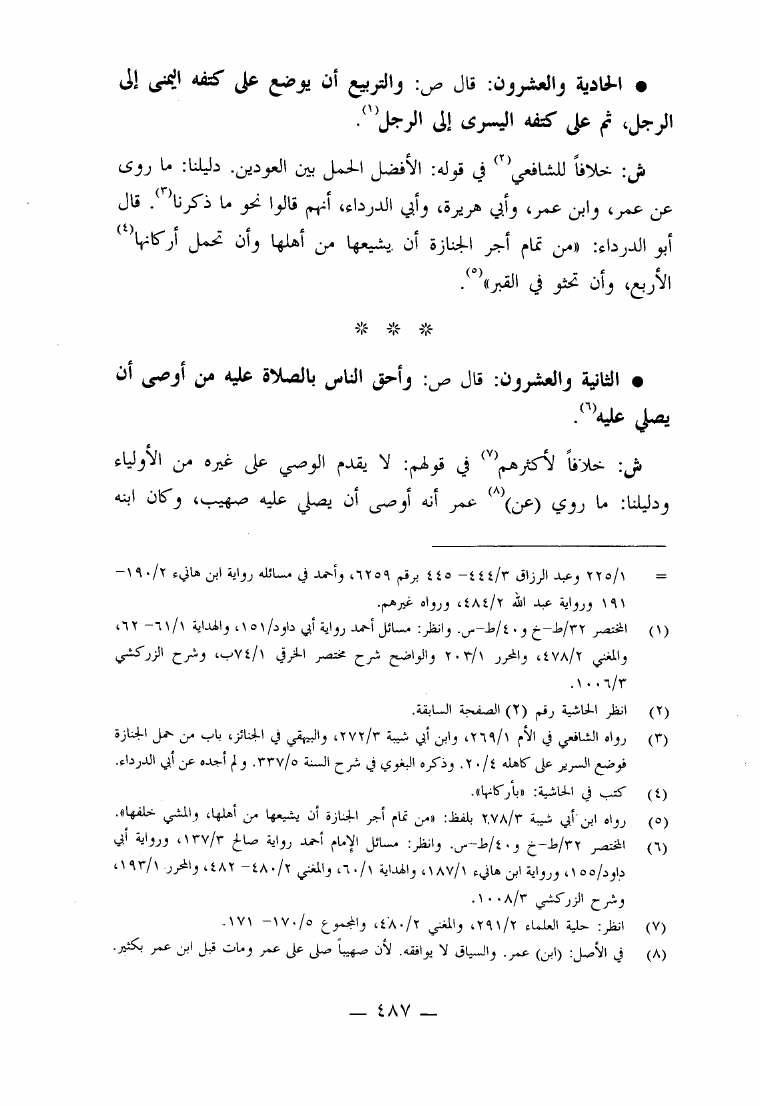 ● الحادية والعشرون: قال ص: والتربيع أن يوضع على كتفه اليمنى إلى
الرجل، ثم على كتفه اليسرى إلى الرجل(١).
ش: خلافاً للشافعي(٢) في قوله: الأفضل الحمل بين العودين. دليلنا: ما روى
عن عمر، وابن عمر، وأبي هريرة، وأبي الدرداء، أنهم قالوا نحو ما ذكرنا(٣). قال
أبو الدرداء: «من تمام أجر الجنازة أن يشيعها من أهلها وأن تحمل أركانها(٤)
الأربع، وأن تحثو في القبر»(٥).
* * *
● الثانية والعشرون: قال ص: وأحق الناس بالصلاة عليه من أوصى أن
يصلي عليه(٦).
ش: خلافاً لأكثرهم(٧) في قولهم: لا يقدم الوصي على غيره من الأولياء
ودليلنا: ما روي (عن)(٨) عمر أنه أوصى أن يصلي عليه صهيب، وكان ابنه
= ٢٢٥/١ وعبد الرزاق ٤٤٤/٣– ٤٤٥ برقم ٦٢٥٩، وأحمد في مسائله رواية ابن هانيء ١٩٠/٢–
١٩١ ورواية عبد الله ٤٨٤/٢، ورواه غيرهم.
(١) المختصر ٣٢/ط–خ و٤٠/ط–س. وانظر: مسائل أحمد رواية أبي داود/١٥١، والهداية ٦١/١– ٦٢،
والمغني ٤٧٨/٢، والمحرر ٢٠٣/١ والواضح شرح مختصر الخرقي ٧٤/١ب، وشرح الزركشي
١٠٠٦/٣.
(٢) انظر الحاشية رقم (٢) الصفحة السابقة.
(٣) رواه الشافعي في الأم ٢٦٩/١، وابن أبي شيبة ٢٧٢/٣، والبيهقي في الجنائز، باب من حمل الجنازة
فوضع السرير على كاهله ٢٠/٤. وذكره البغوي في شرح السنة ٣٣٧/٥. ولم أجده عن أبي الدرداء.
(٤) كتب في الحاشية: «بأركانها».
(٥) رواه ابن أبي شيبة ٢٧٨/٣ بلفظ: «من تمام أجر الجنازة أن يشيعها من أهلها، والمشي خلفها».
(٦) المختصر ٣٢/ط–خ و٤٠/ط–س. وانظر: مسائل الإمام أحمد رواية صالح ١٣٧/٣، ورواية أبي
داود/١٥٥، ورواية ابن هانيء ١٨٧/١، والهداية ٦٠/١، والمغني ٤٨٠/٢– ٤٨٢، والمحرر ١٩٣/١،
وشرح الزركشي ١٠٠٨/٣.
(٧) انظر: حلية العلماء ٢٩١/٢، والمغني ٤٨٠/٢، والمجموع ١٧٠/٥– ١٧١.
(٨) في الأصل: (ابن) عمر. والسياق لا يوافقه. لأن صهيباً صلى على عمر ومات قبل ابن عمر بكثير.
— ٤٨٧ —